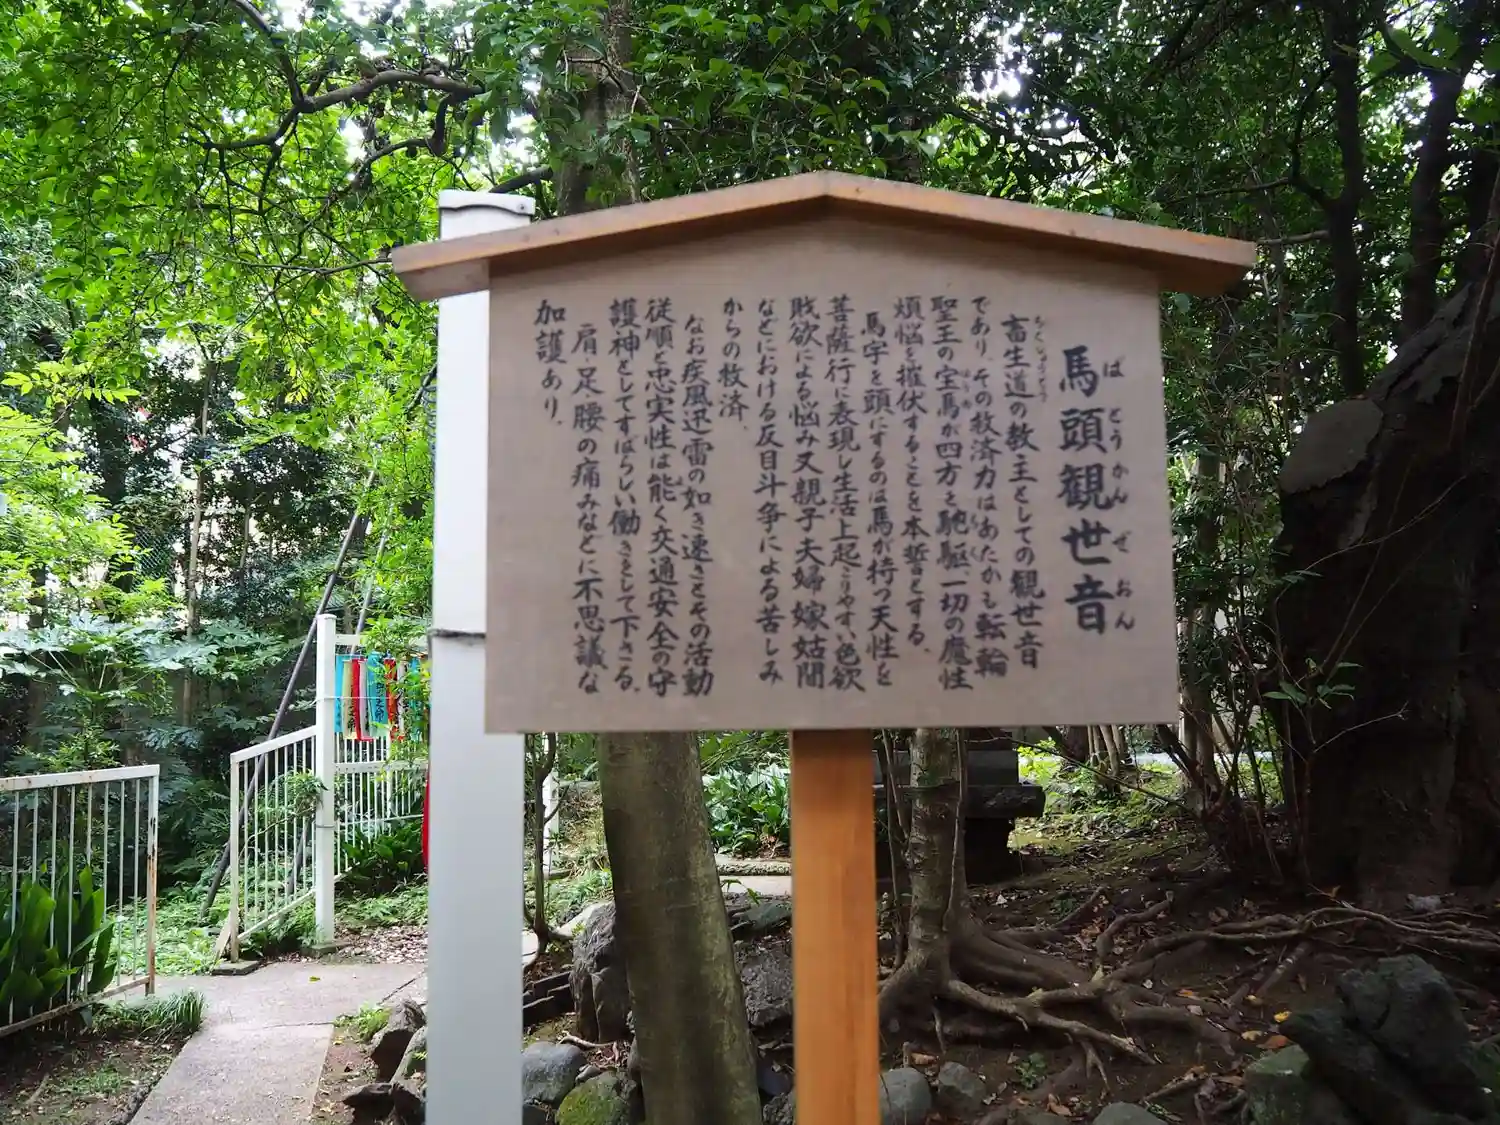 馬頭観世音
ばとうかんぜおん
畜生道の教主としての観世音
ちくしょうどう
であり、その救済力はあたかも転輪
聖王の宝馬が四方を馳駆、一切の魔性
煩悩を摧伏することを本誓とする、
馬宇を頭にするのは馬が持つ天性を
菩薩行に表現し生活上起こりやすい色欲
戝欲による悩み又親子夫婦嫁姑間
などにおける反目斗争による苦しみ
からの救済、
なお疾風迅雷の如き速さとその活動
従順と忠実性は能く交通安全の守
護神としてすばらしい働きをして下さる、
肩足腰の痛みなどに不思議な
加護あり、